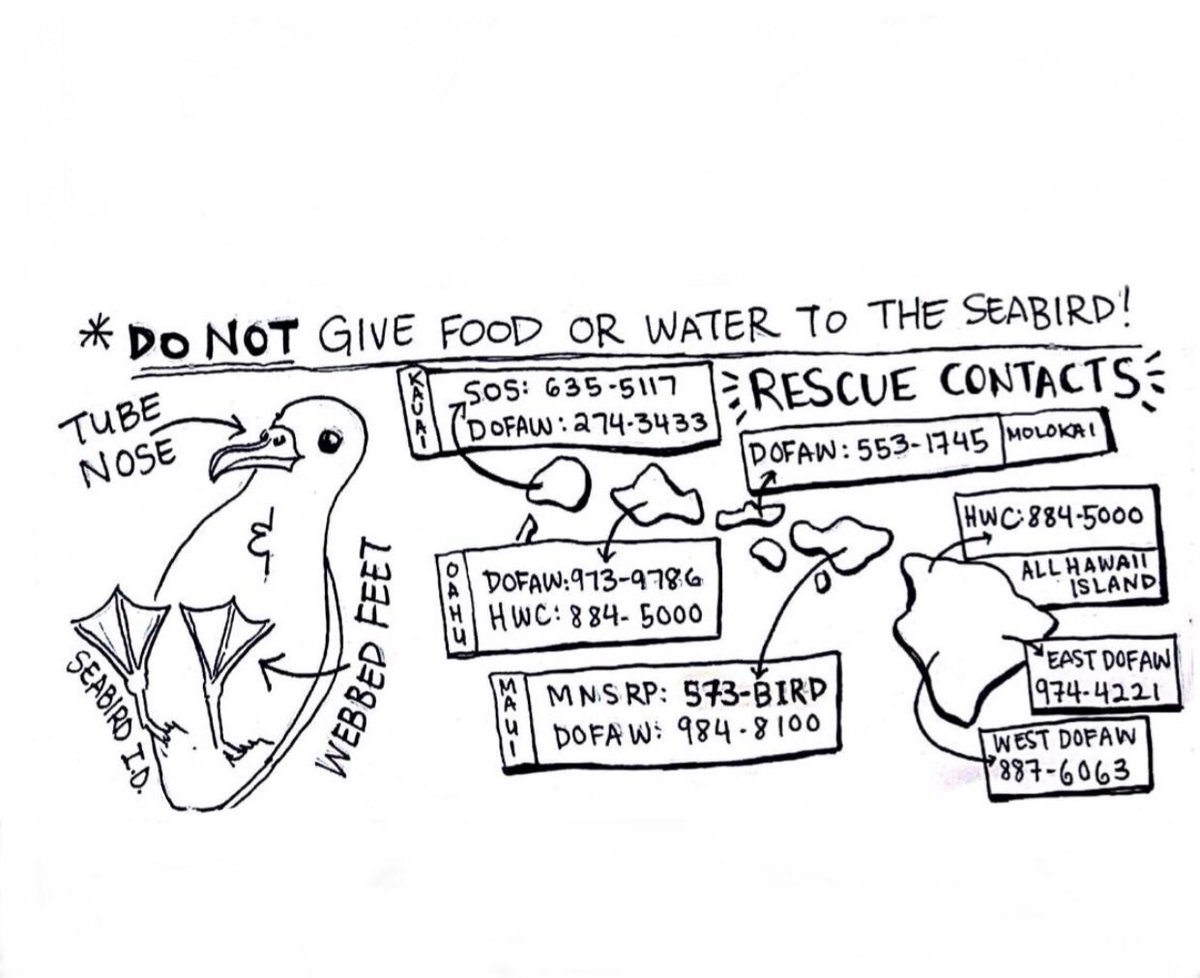 * DO NOT GIVE FOOD OR WATER TO THE SEABIRD!
TUBE
NOSE
WEBBED FEET
SEABIRD I.D.
KAUAI
SOS: 635-5117
DOFAW: 274-3433
RESCUE CONTACTS
DOFAW: 553-1745
MOLOKAI
OAHU
DOFAW: 973-9786
HWC: 884-5000
HWC: 884-5000
ALL HAWAII
ISLAND
MAUI
MNSRP: 573-BIRD
DOFAW: 984-8100
EAST DOFAW
974-4221
WEST DOFAW
887-6063